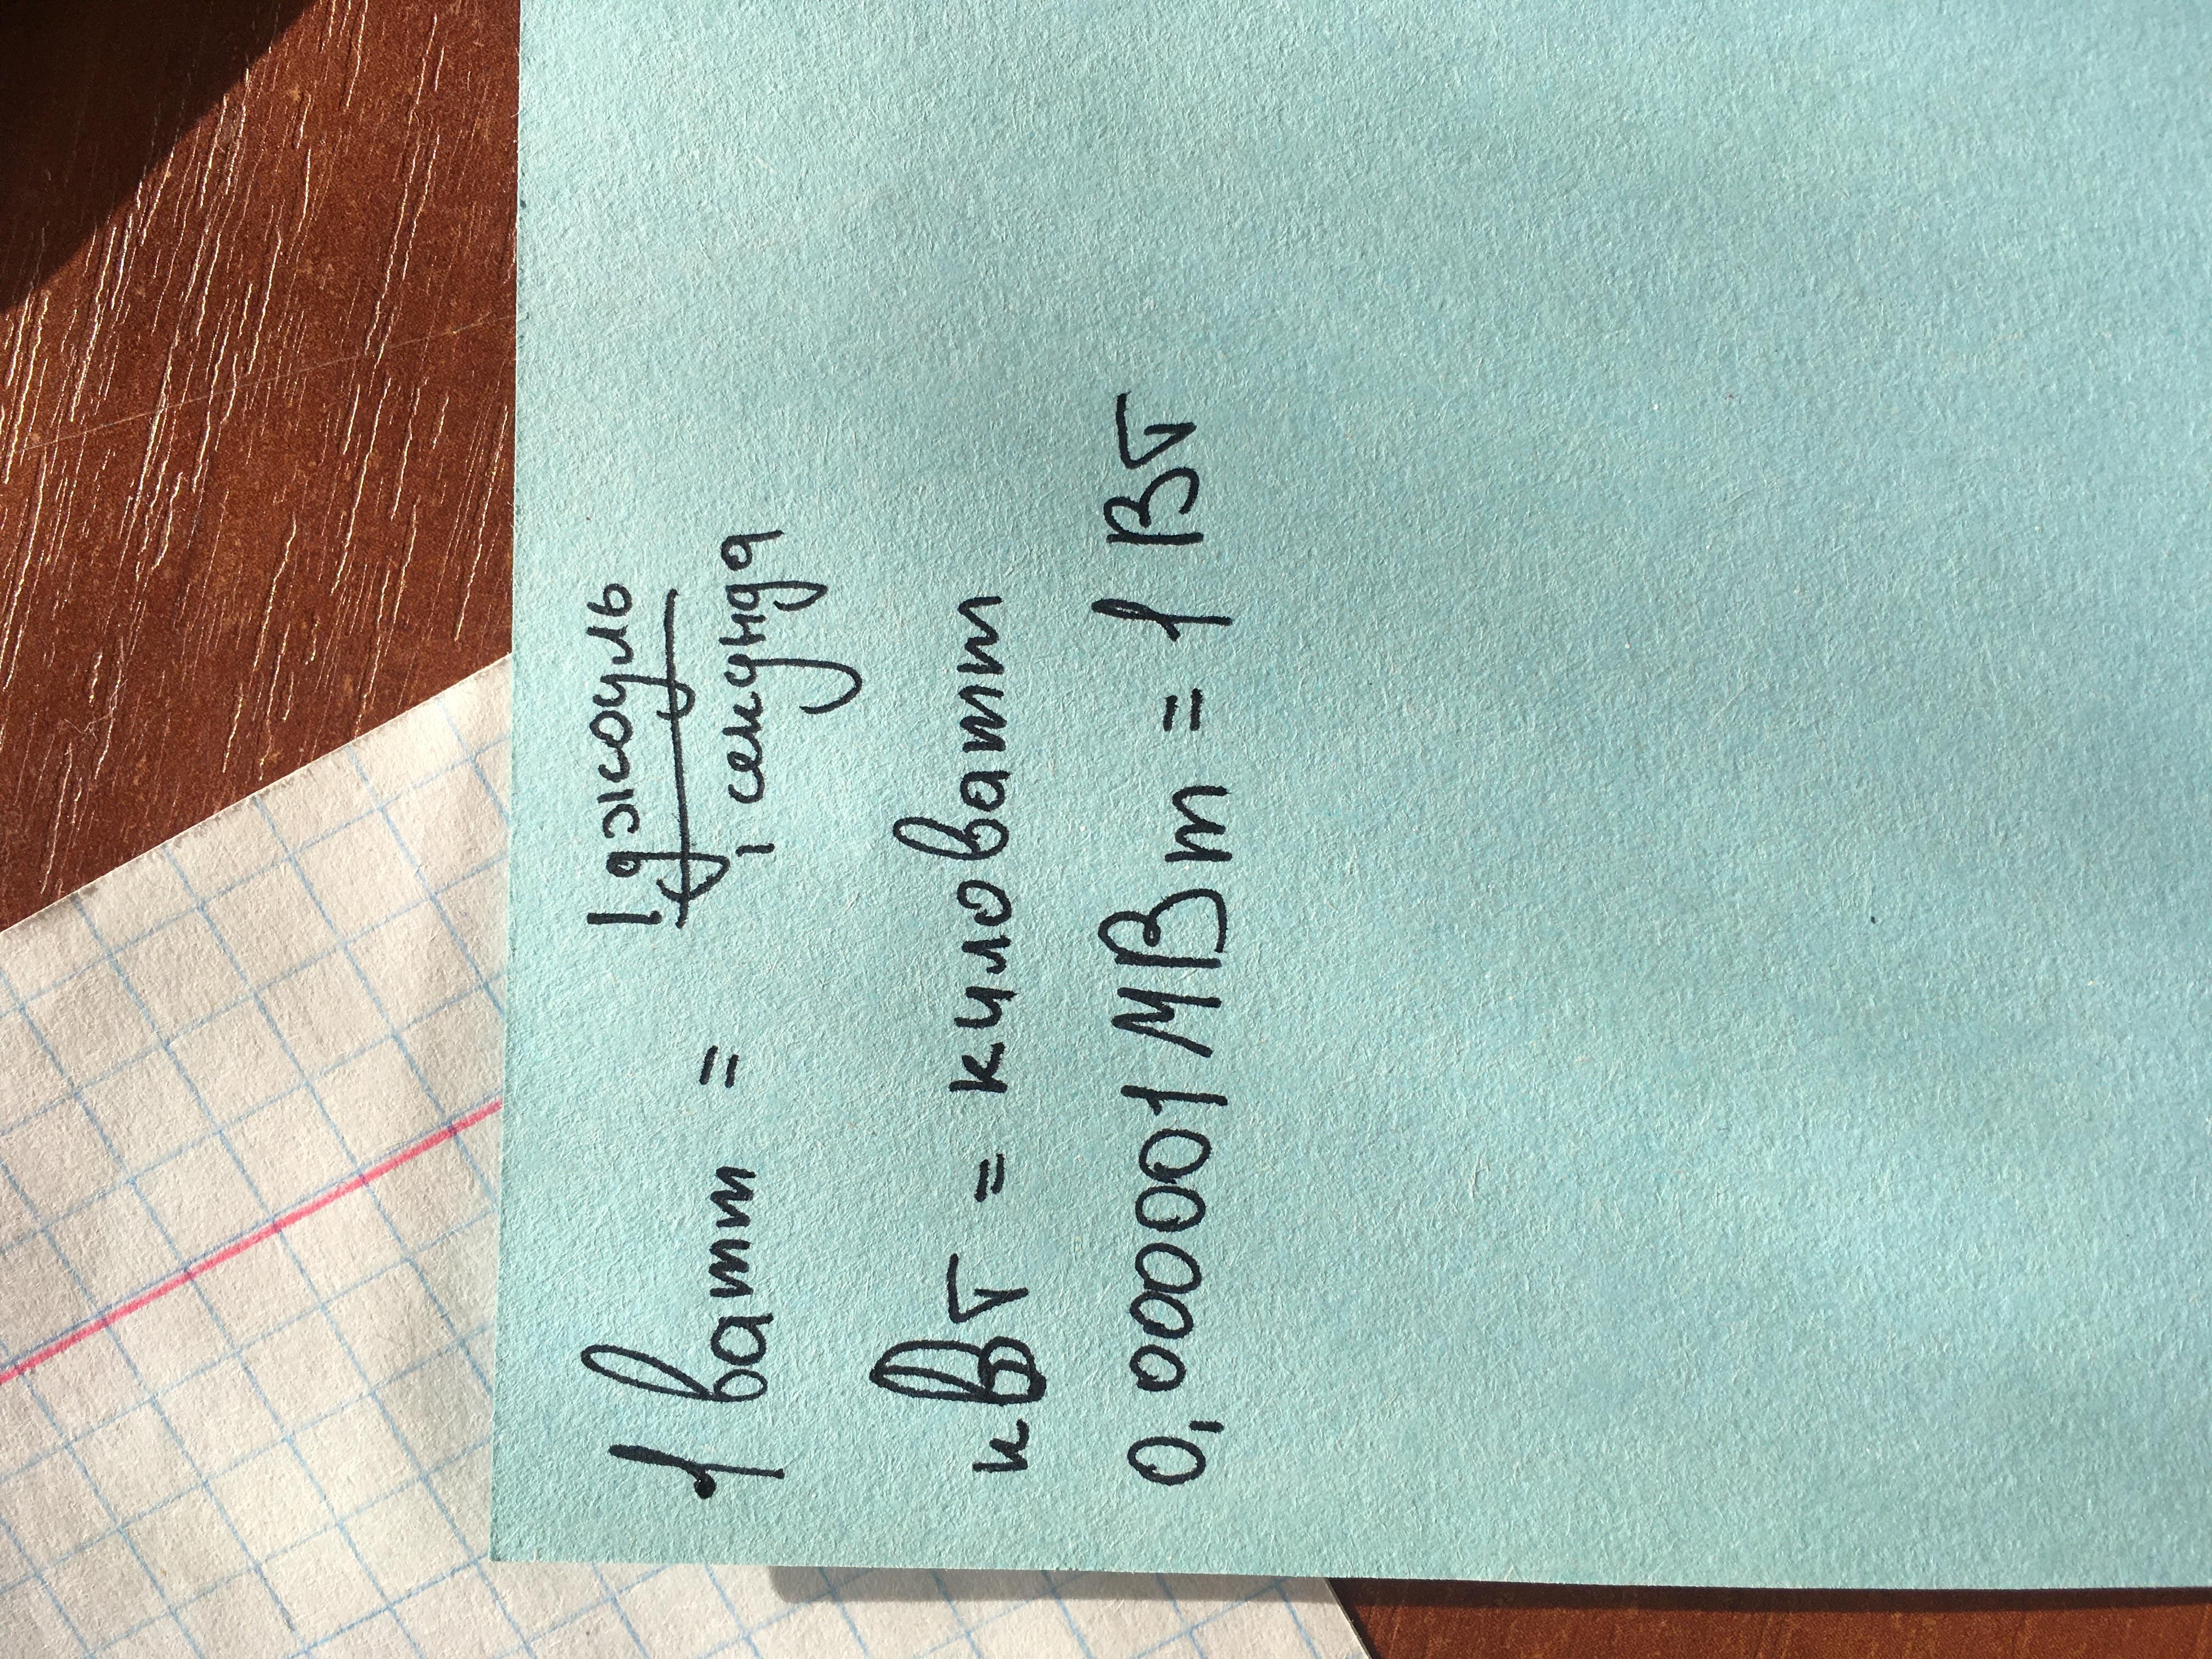 1 ватт = 1 джоуль / 1 секунда
кВт = киловатт
0,000001 МВт = 1 Вт